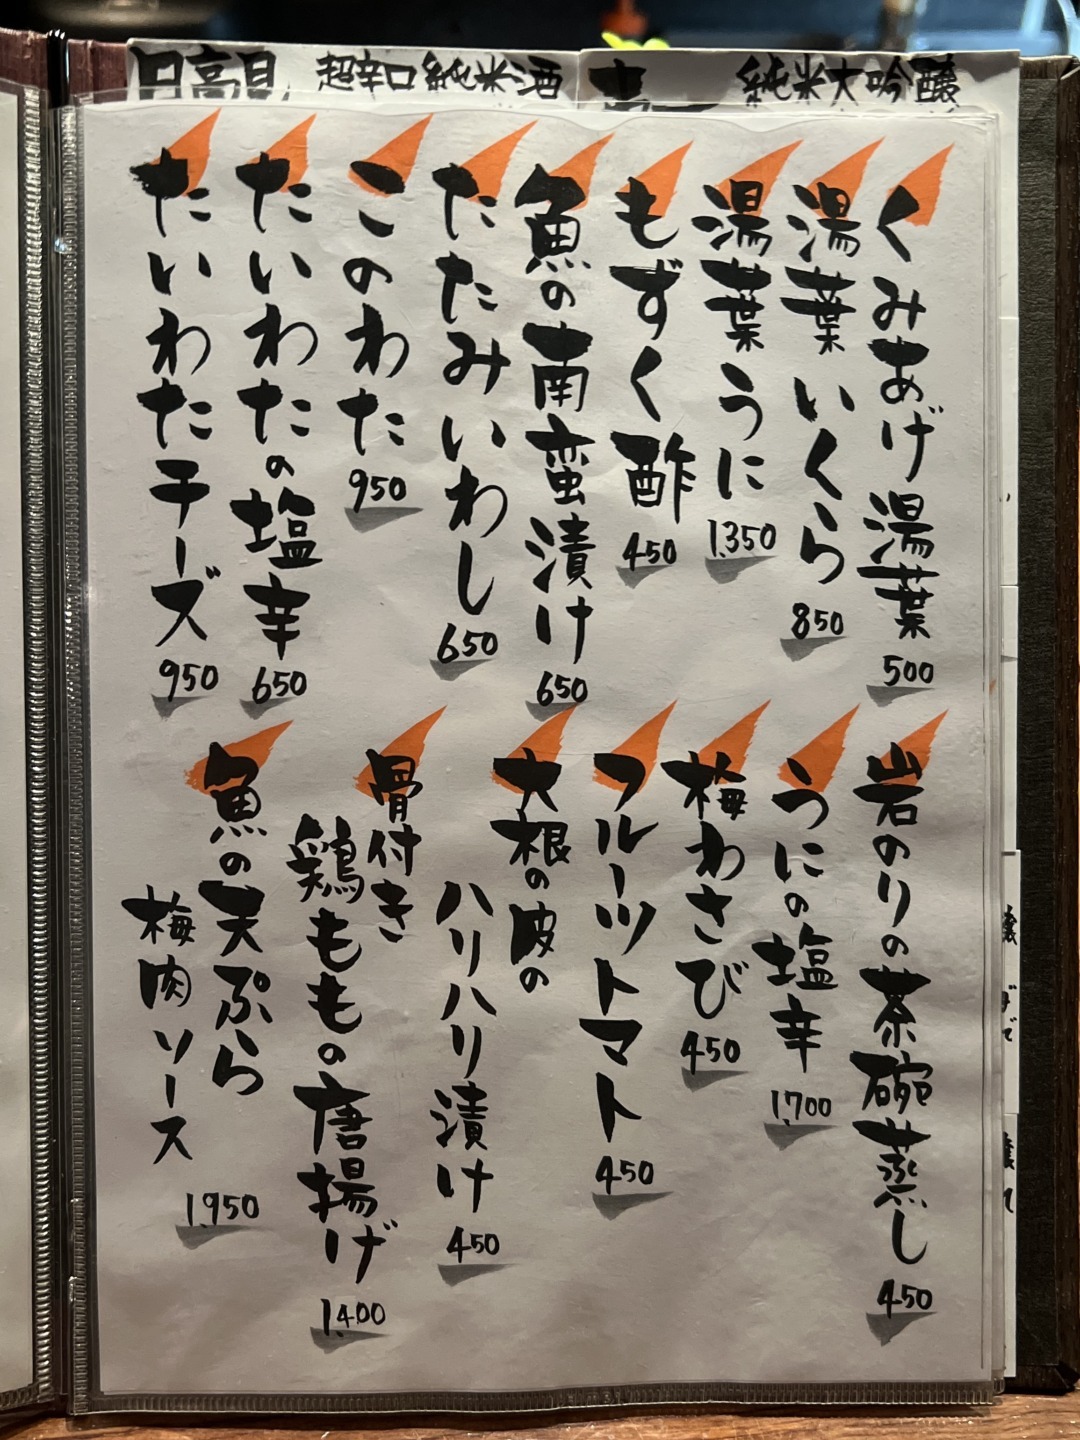 日高見 超辛口純米酒
純米大吟醸
くみあげ湯葉 500
湯葉いくら 850
湯葉うに 1,350
もずく酢 450
魚の南蛮漬け 650
たたみいわし 650
このわた 950
たいわたの塩辛 650
たいわたチーズ 950
岩のりの茶碗蒸し 450
うにの塩辛 1,700
梅わさび 450
フルーツトマト 450
大根の皮の
ハリハリ漬け 450
骨付き
鶏ももの唐揚げ 1,400
魚の天ぷら
梅肉ソース 1,950